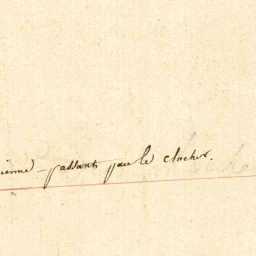 ienne passant par le clocher.